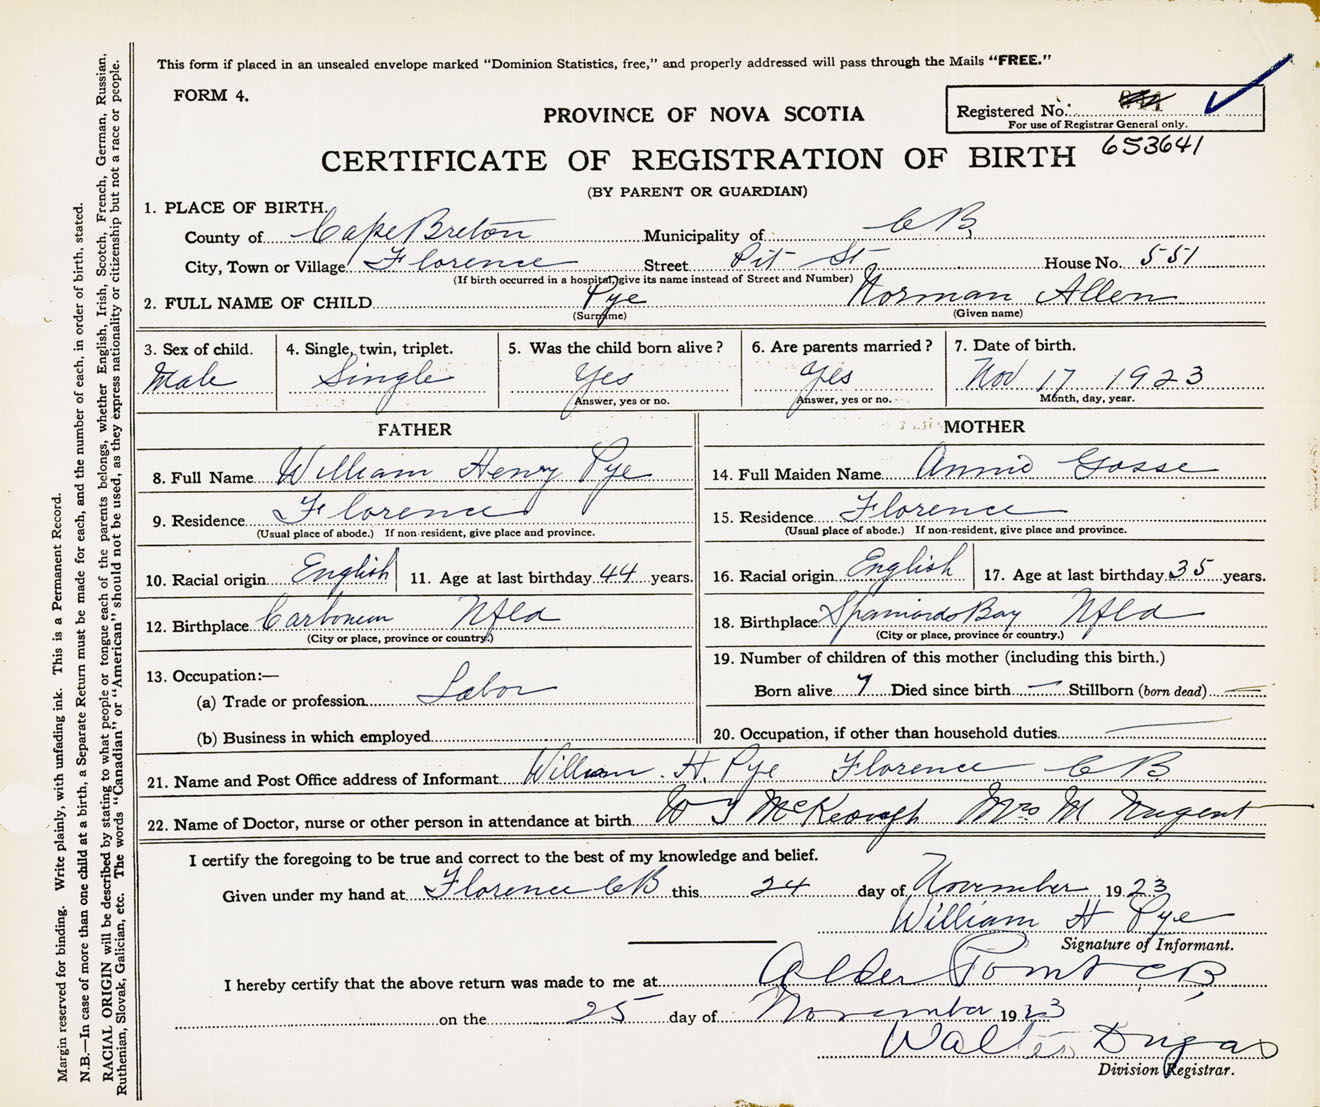 This form if placed in an unsealed envelope marked "Dominion Statistics, free," and properly addressed will pass through the Mails "FREE."
FORM 4.
PROVINCE OF NOVA SCOTIA
Registered No.
For use of Registrar General only.
653641
CERTIFICATE OF REGISTRATION OF BIRTH
(BY PARENT OR GUARDIAN)
1. PLACE OF BIRTH.
County of Cape Breton Municipality of C B
City, Town or Village Florence Street Pit St House No. 551
(If birth occurred in a hospital, give its name instead of Street and Number)
2. FULL NAME OF CHILD Pye Norman Allen
(Surname) (Given name)
3. Sex of child. 4. Single, twin, triplet. 5. Was the child born alive? 6. Are parents married? 7. Date of birth.
Male Single Yes Yes Nov 17 1923
Answer, yes or no. Answer, yes or no. Month, day, year.
FATHER MOTHER
8. Full Name William Henry Pye 14. Full Maiden Name Annie Gosse
9. Residence Florence 15. Residence Florence
(Usual place of abode.) If non-resident, give place and province. (Usual place of abode.) If non-resident, give place and province.
10. Racial origin English 11. Age at last birthday 44 years. 16. Racial origin English 17. Age at last birthday 35 years.
12. Birthplace Carbonear Nfld 18. Birthplace Spaniards Bay Nfld
(City or place, province or country.) (City or place, province or country.)
13. Occupation:— 19. Number of children of this mother (including this birth.)
(a) Trade or profession Labor Born alive 7 Died since birth — Stillborn (born dead) —
(b) Business in which employed 20. Occupation, if other than household duties —
21. Name and Post Office address of Informant William H. Pye Florence C B
22. Name of Doctor, nurse or other person in attendance at birth W J McKeough Mrs M Nugent
I certify the foregoing to be true and correct to the best of my knowledge and belief.
Given under my hand at Florence C B this 24 day of November 1923
William H Pye
Signature of Informant.
I hereby certify that the above return was made to me at Alder Point C B
on the 25 day of November 1923
Walter Dugas
Division Registrar.
Margin reserved for binding. Write plainly, with unfading ink. This is a Permanent Record.
N.B.—In case of more than one child at a birth, a Separate Return must be made for each, and the number of each, in order of birth, stated.
RACIAL ORIGIN will be described by stating to what people or tongue each of the parents belongs, whether English, Irish, Scotch, French, German, Russian,
Ruthenian, Slovak, Galician, etc. The words "Canadian" or "American" should not be used, as they express nationality or citizenship but not a race or people.